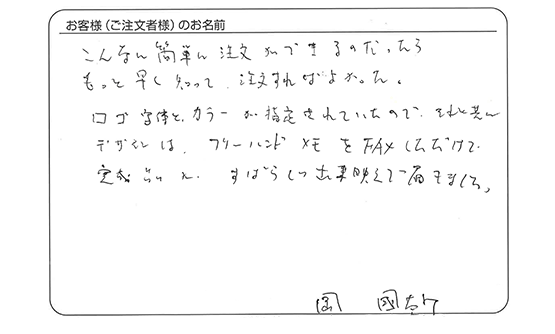 お客様（ご注文者様）のお名前
こんなに簡単に注文ができるのだったら
もっと早く知って、注文すればよかった。
ロゴ字体と、カラーが指定されていたので、それと共に
デザインは、フリーハンドメモをFAXしただけで
完成 すばらしい出来映えで届きました。
國